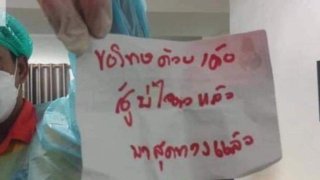 ขอโทษด้วยเด้อ
สู้บ่ไหวแล้ว
มาสุดทางแล้ว